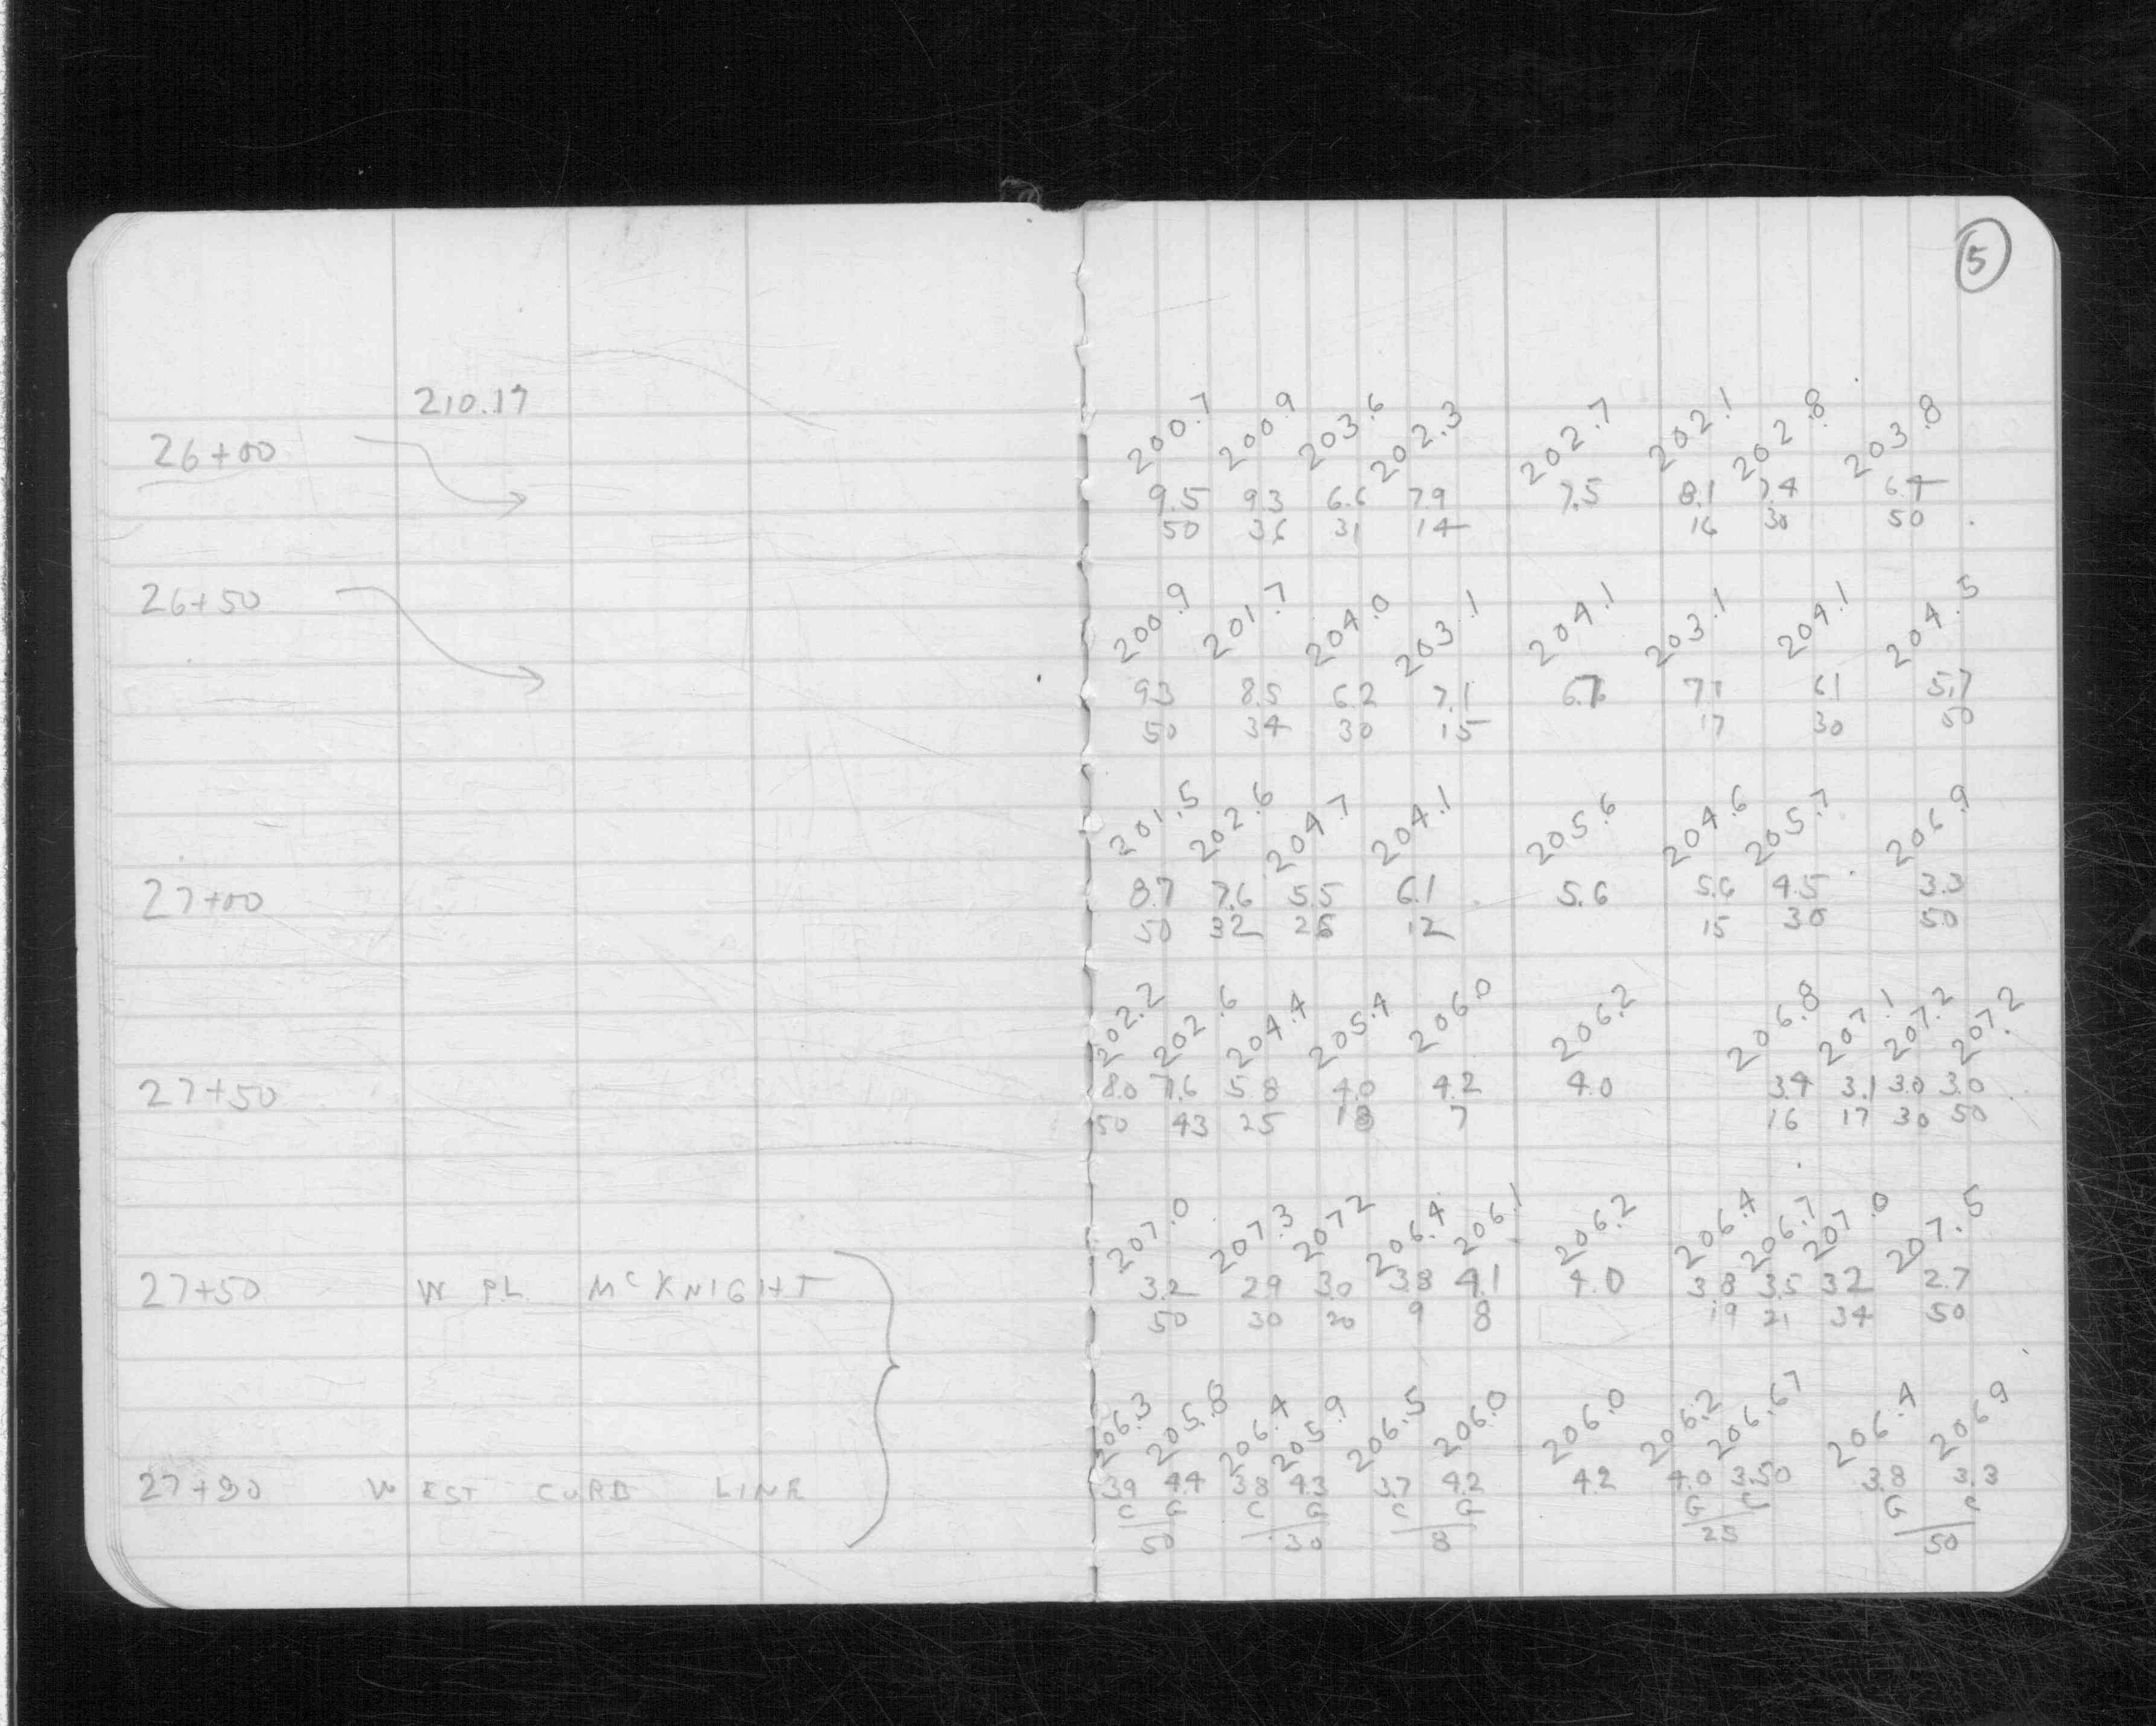 5
210.17
26+00
200.7 200.9 203.6 202.3 202.7 202.1 202.8 203.8
9.5 9.3 6.6 7.9 7.5 8.1 7.4 6.4
50 36 31 14 16 30 50
26+50
200.9 201.7 204.0 203.1 204.1 203.1 204.1 204.5
93 8.5 6.2 7.1 71 61 5.7
50 34 30 15 17 30 50
201.5 202.6 204.7 204.1 205.6 204.6 205.7 206.9
27+00 8.7 7.6 5.5 6.1 5.6 5.6 4.5 3.3
50 32 26 12 15 30 50
202.2 202.6 204.4 205.4 206.0 206.2 206.8 207.1 207.2 207.2
27+50 8.0 7.6 5.8 4.0 4.2 4.0 3.4 3.1 3.0 3.0
50 43 25 18 7 16 17 30 50
207.0 207.3 207 2 206.4 206.1 206.2 206.4 206.7 207.0 207.5
27+50 W PL McKNIGHT 3.2 29 30 38 4.1 4.0 3.8 3.5 32 2.7
50 30 20 9 8 19 21 34 50
206.3 205.8 206.4 205.9 206.5 206.0 206.0 206.2 206.67 206.4 206.9
WEST CURB LINE 39 4.4 38 43 3.7 4.2 42 4.0 3.50 3.8 3.3
C G C G C G G C G C
50 30 8 25 50